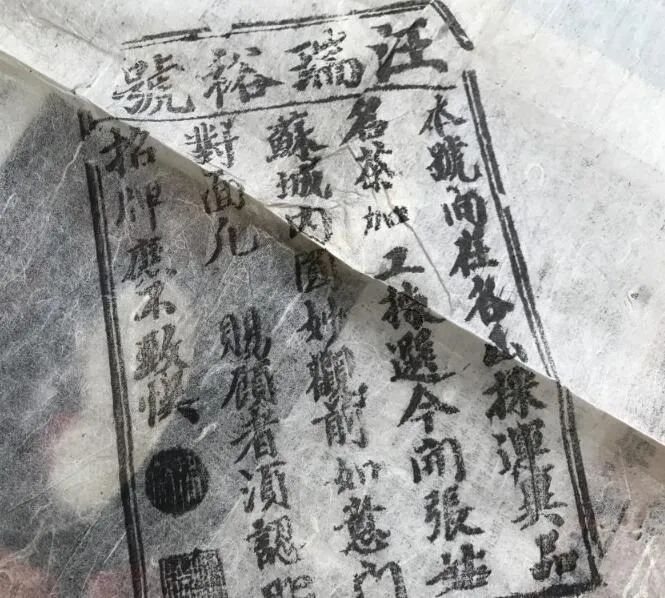 汪瑞裕號
本號向各山採運真品
名茶加工揀選今開張姑
蘇城內圓妙觀前如意門
對面凡 賜顧者須認明
招牌應不致悞